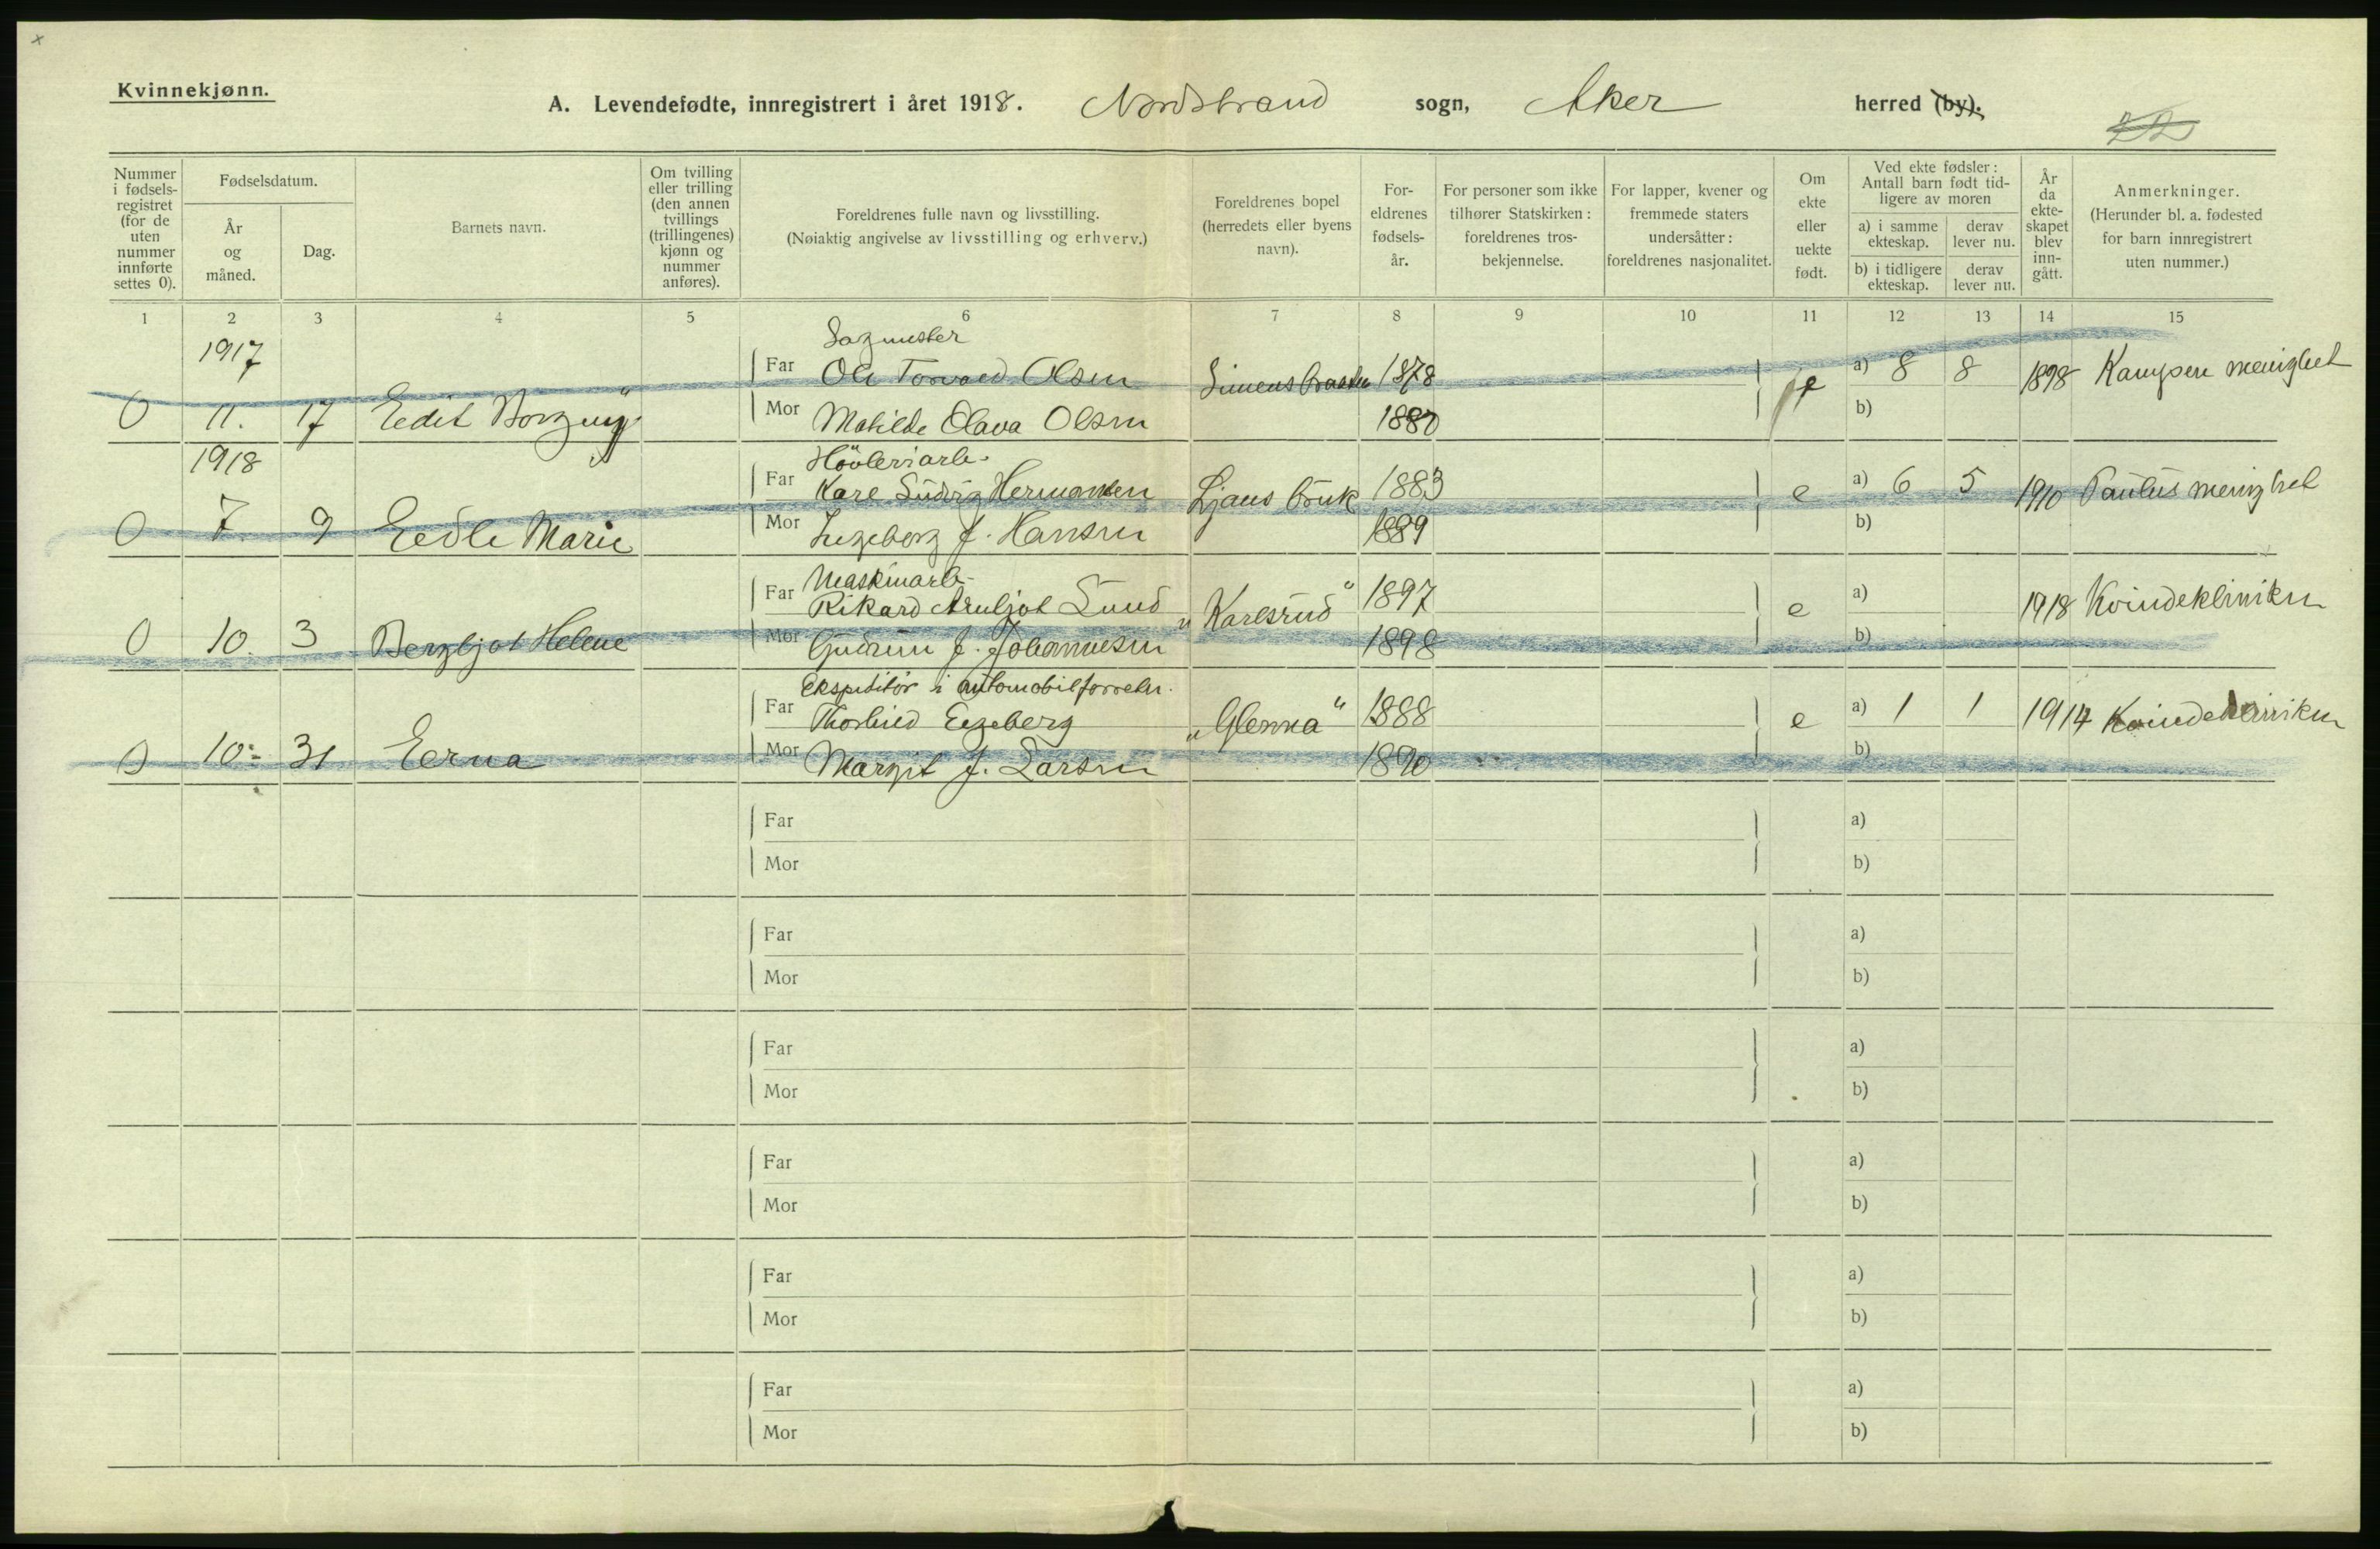 Kvinnekjønn.
A. Levendefødte, innregistrert i året 1918. Nordstrand sogn, Aker herred (by).
Nummer i fødsels-registret (for de uten nummer innførte settes 0).
Fødselsdatum.
År og måned.
Dag.
Barnets navn.
Om tvilling eller trilling (den annen tvillings (trillingenes) kjønn og nummer anføres).
Foreldrenes fulle navn og livsstilling.
(Nøiaktig angivelse av livsstilling og erhverv.)
Foreldrenes bopel (herredets eller byens navn).
For-eldrenes fødsels-år.
For personer som ikke tilhører Statskirken: foreldrenes tros-bekjennelse.
For lapper, kvener og fremmede staters undersåtter: foreldrenes nasjonalitet.
Om ekte eller uekte født.
Ved ekte fødsler: Antall barn født tid-ligere av moren
a) i samme ekteskap.
derav lever nu.
b) i tidligere ekteskap.
derav lever nu.
År da ekte-skapet blev inn-gått.
Anmerkninger.
(Herunder bl. a. fødested for barn innregistrert uten nummer.)
1 2 3 4 5 6 7 8 9 10 11 12 13 14 15
1917 Sagmester
Far Ole Torvald Olsen 1878 e a) 8 8 1898 Kampen menighet
0 11. 17 Edit Mor Matilde Olava Olsen 1880 b)
1918 Høvleriarb.
Far Karl Ludvig Hermansen Ljans bruk 1883 e a) 6 5 1910 Paulus menighet
0 7. 9 Edle Marie Mor Ingeborg J. Hansen 1889 b)
Maskinarb.
Far Rikard Arnljot Lund „Karlsrud“ 1897 e a) 1918 Kvindekliniken
0 10. 3 Bergljot Helene Mor Gudrun J. Johannesen 1898 b)
Ekspeditør i automobilforretn.
Far Thorleif Egeberg „Glenna“ 1888 e a) 1 1 1914 Kvindekliniken
0 10. 31 Erna Mor Margit J. Larsen 1890 b)
Far a)
Mor b)
Far a)
Mor b)
Far a)
Mor b)
Far a)
Mor b)
Far a)
Mor b)
Far a)
Mor b)